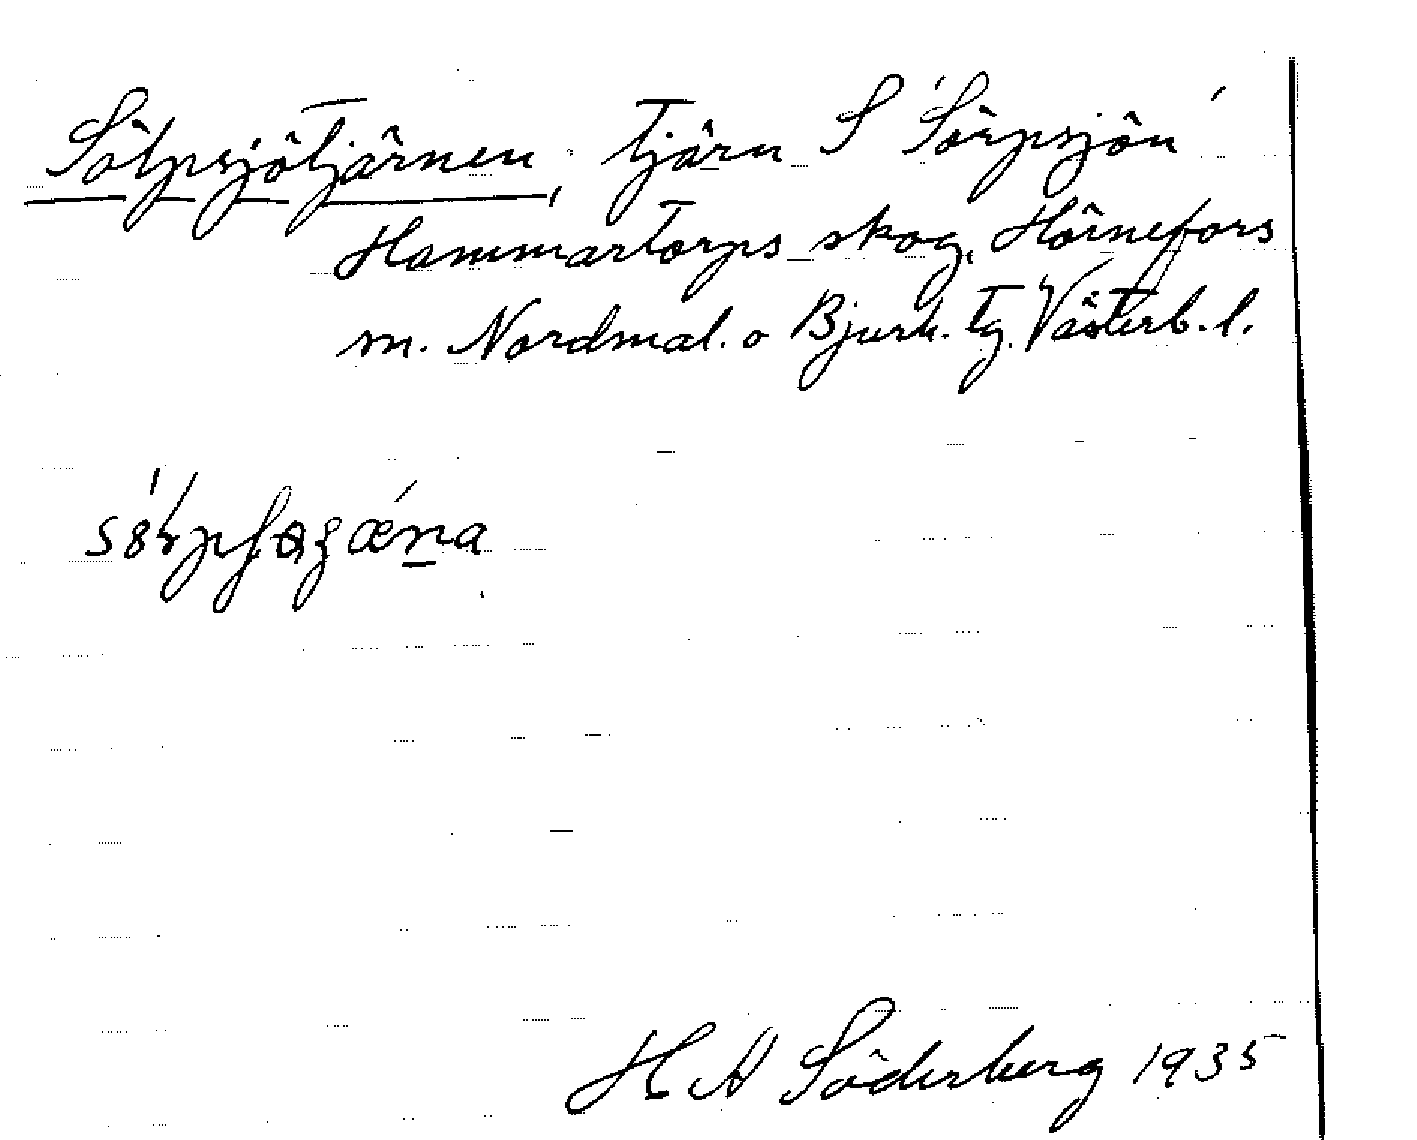 Sölpsjötjärnen, tjärn S 'Sörpsjön'
Hammartorps skog, Hörnefors
m. Nordmal. o Bjurh. tg. Västerb. l.
H A Söderberg 1935